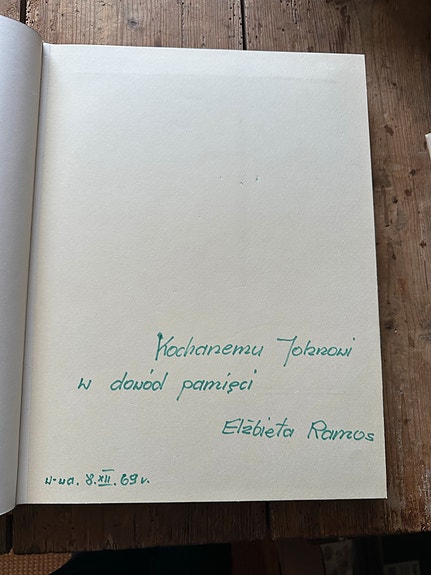 Kochanemu Johnowi
w dowód pamięci
Elżbieta Ramos
W-wa. 8.XII.69 r.